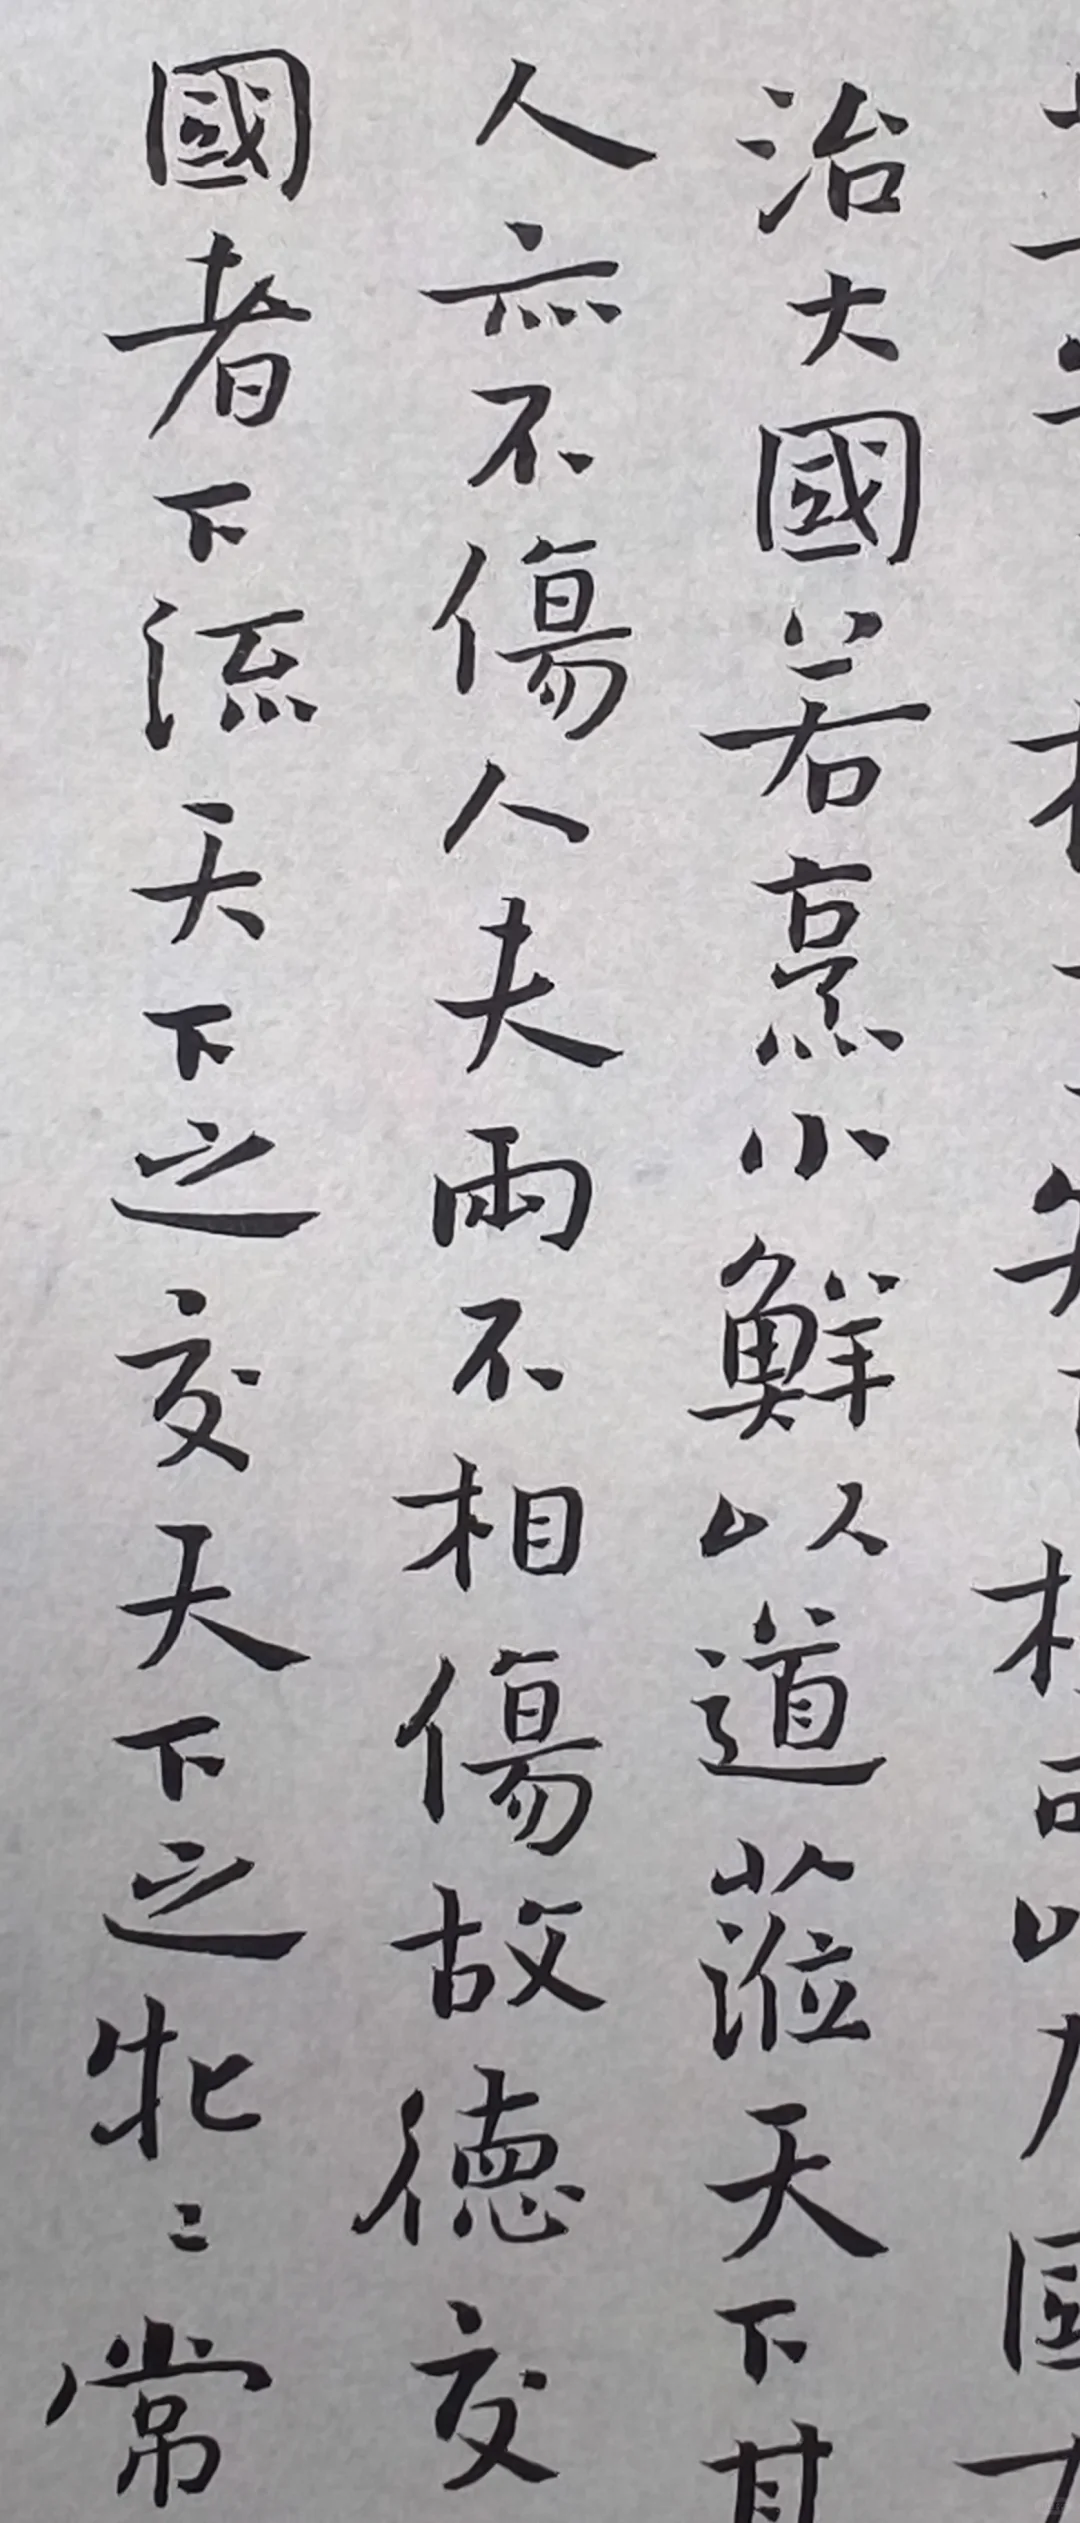 治大國若烹小鮮以道蒞天下其
人亦不傷人夫兩不相傷故德交
國者下流天下之交天下之牝〻常